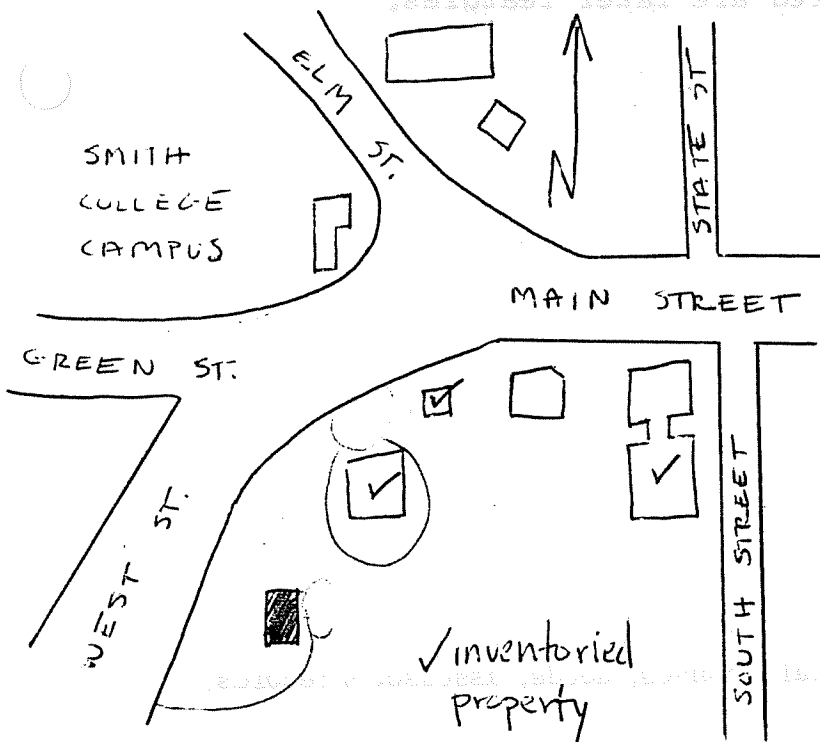 ELM ST.
SMITH
COLLEGE
CAMPUS
N
STATE ST
MAIN STREET
GREEN ST.
WEST ST.
SOUTH STREET
✓ inventoried
property